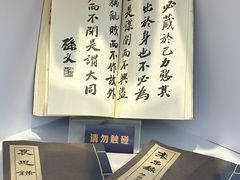 必藏於己力惡其
出於身也不必為
是謀閉而不興盜
竊亂賊而不作故外
而不閉是謂大同
孫文
请勿触碰